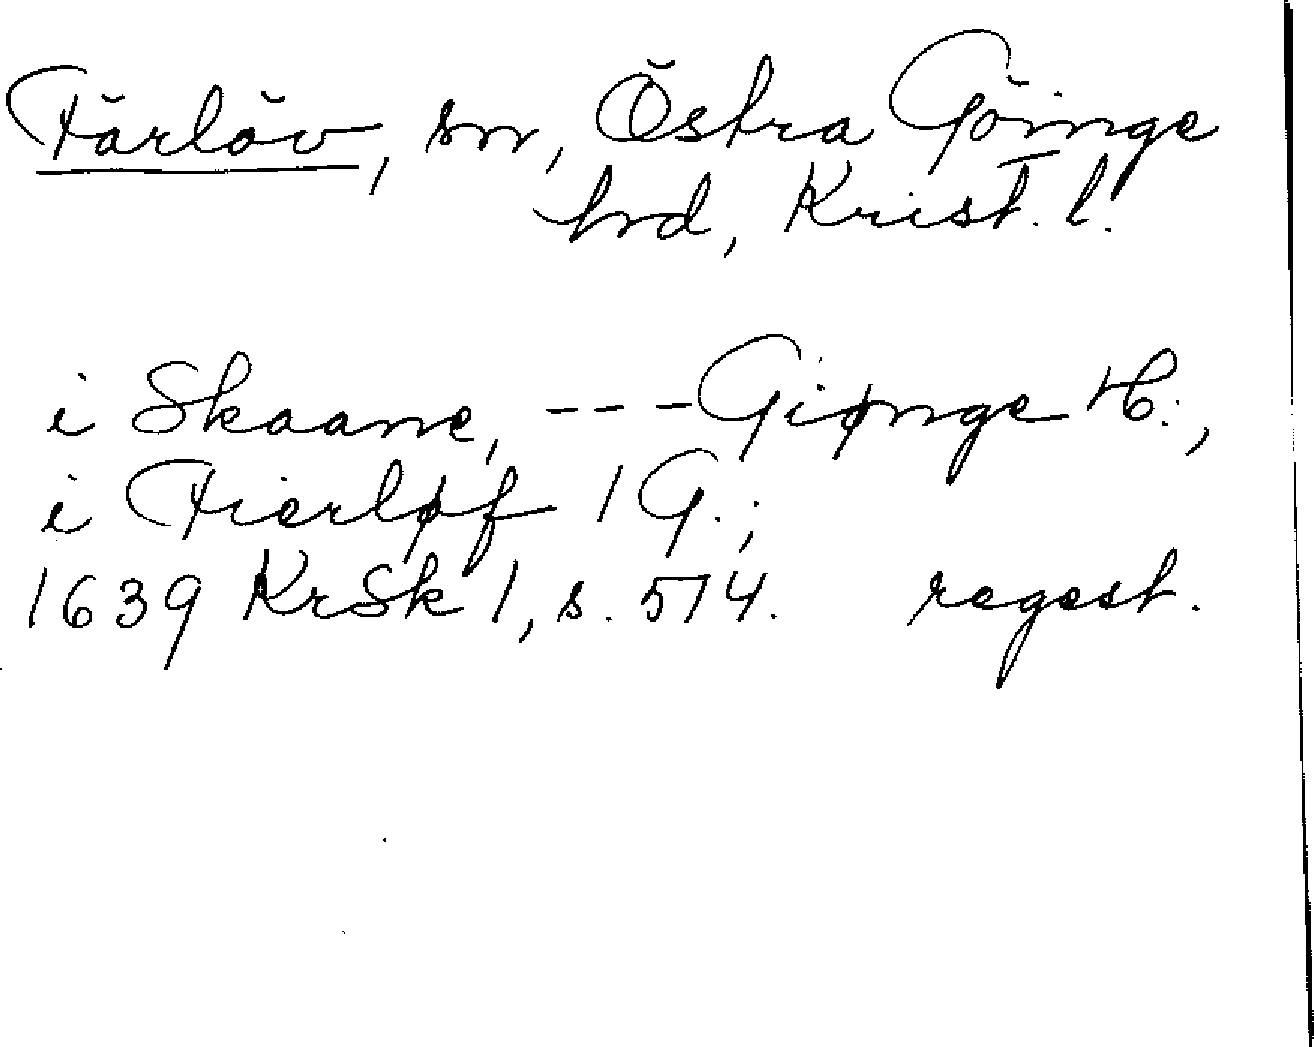 Färlöv, sn, Östra Göinge
hrd, Krist. l.
i Skaane, --- Giønge H.,
i Fierløf 1 G.;
1639 KrSk 1, s. 574. regest.